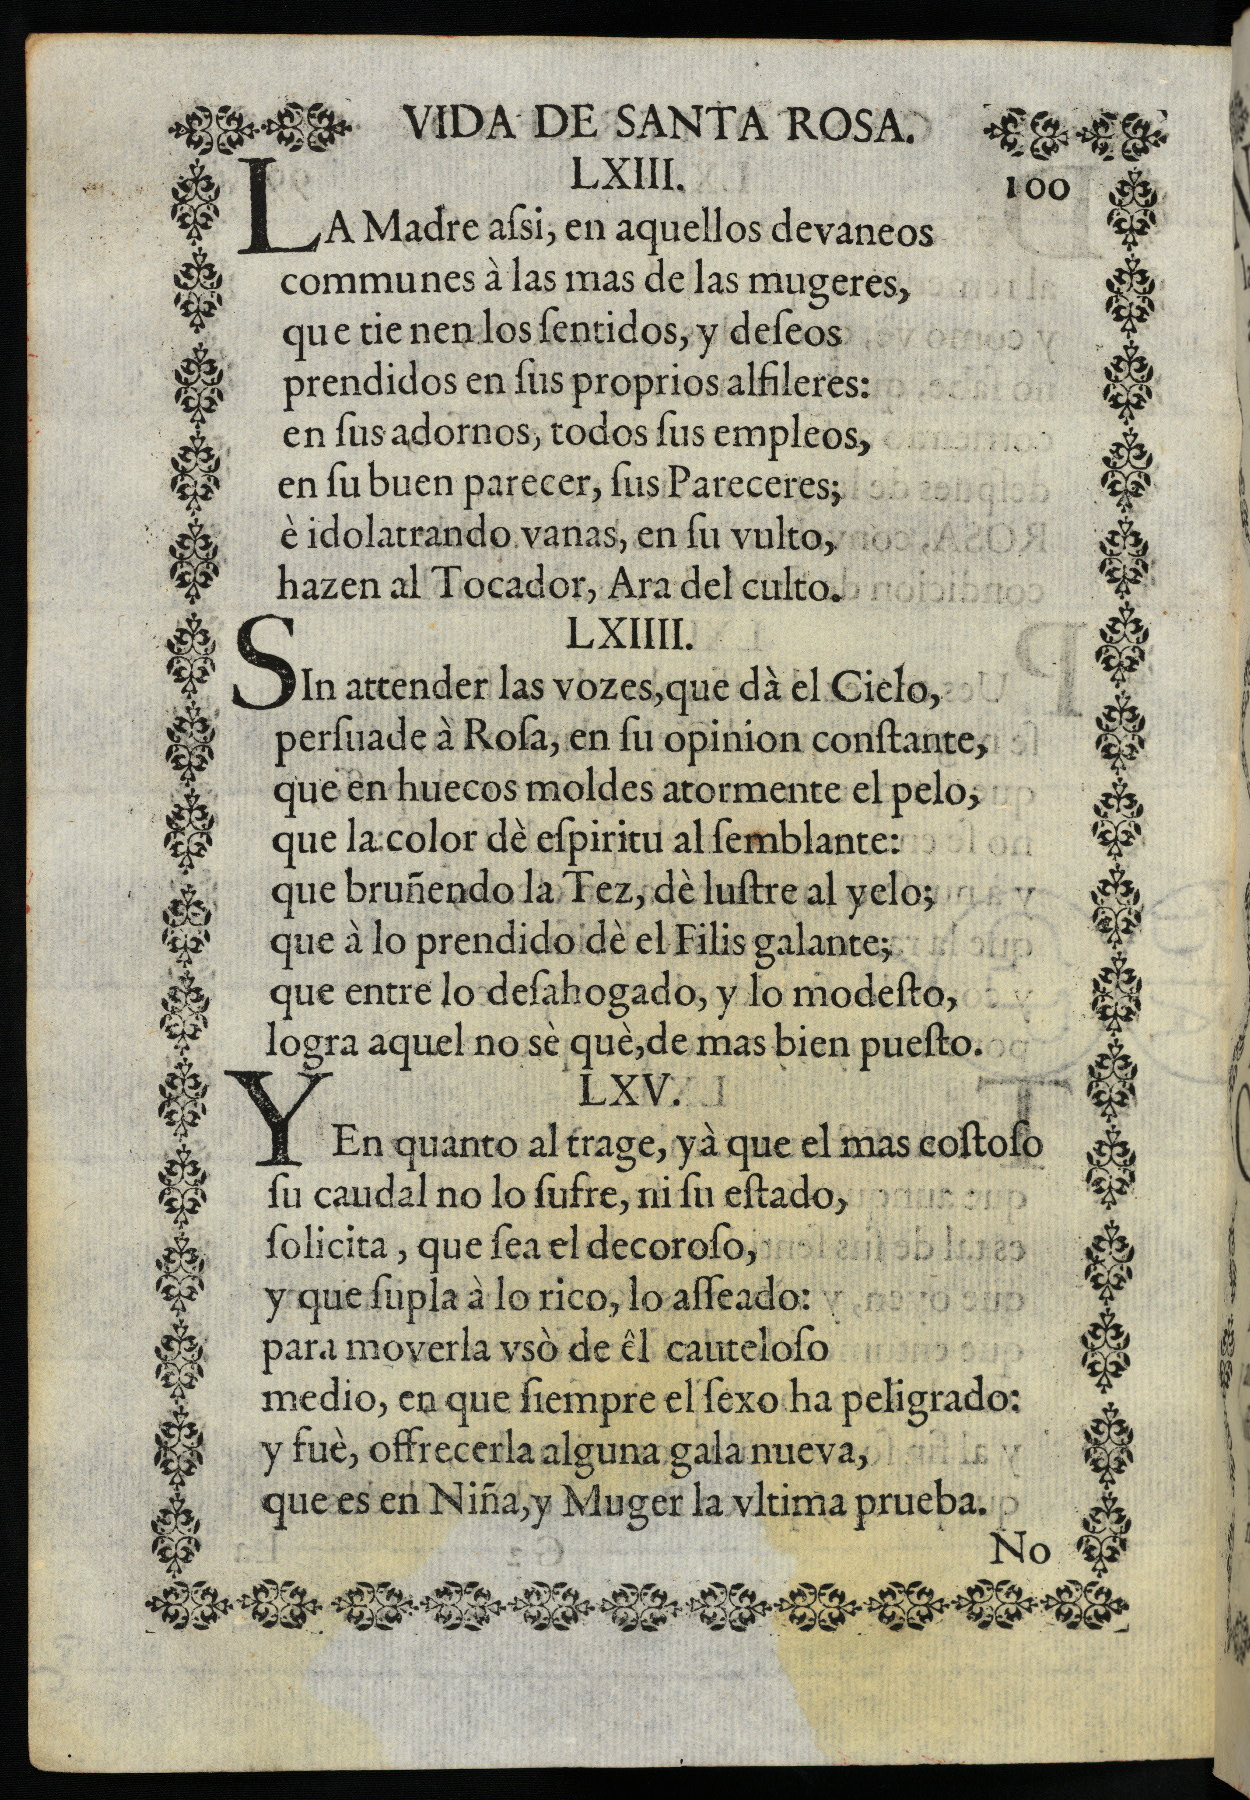 VIDA DE SANTA ROSA.
LXIII.
100
LA Madre aſsi, en aquellos devaneos
communes à las mas de las mugeres,
que tie nen los ſentidos, y deſeos
prendidos en ſus proprios alfileres:
en ſus adornos, todos ſus empleos,
en ſu buen parecer, ſus Pareceres;
è idolatrando vanas, en ſu vulto,
hazen al Tocador, Ara del culto.
LXIIII.
SIn attender las vozes,que dà el Cielo,
perſuade à Roſa, en ſu opinion conſtante,
que en huecos moldes atormente el pelo,
que la color dè eſpiritu al ſemblante:
que bruñendo la Tez, dè luſtre al yelo;
que à lo prendido dè el Filis galante;
que entre lo deſahogado, y lo modeſto,
logra aquel no sè què,de mas bien pueſto.
LXV.
Y En quanto al trage, yà que el mas coſtoſo
ſu caudal no lo ſufre, ni ſu eſtado,
ſolicita , que ſea el decoroſo,
y que ſupla à lo rico, lo aſſeado:
para moverla vsò de êl cauteloſo
medio, en que ſiempre el ſexo ha peligrado:
y fuè, offrecerla alguna gala nueva,
que es en Niña,y Muger la vltima prueba.
No